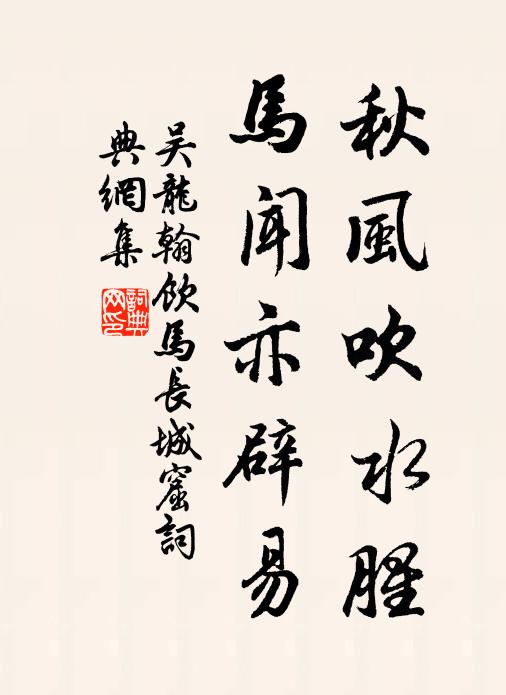 秋風吹水腥
馬聞亦辟易
吴龍翰飲馬長城窟詞
典網集
詞典网印